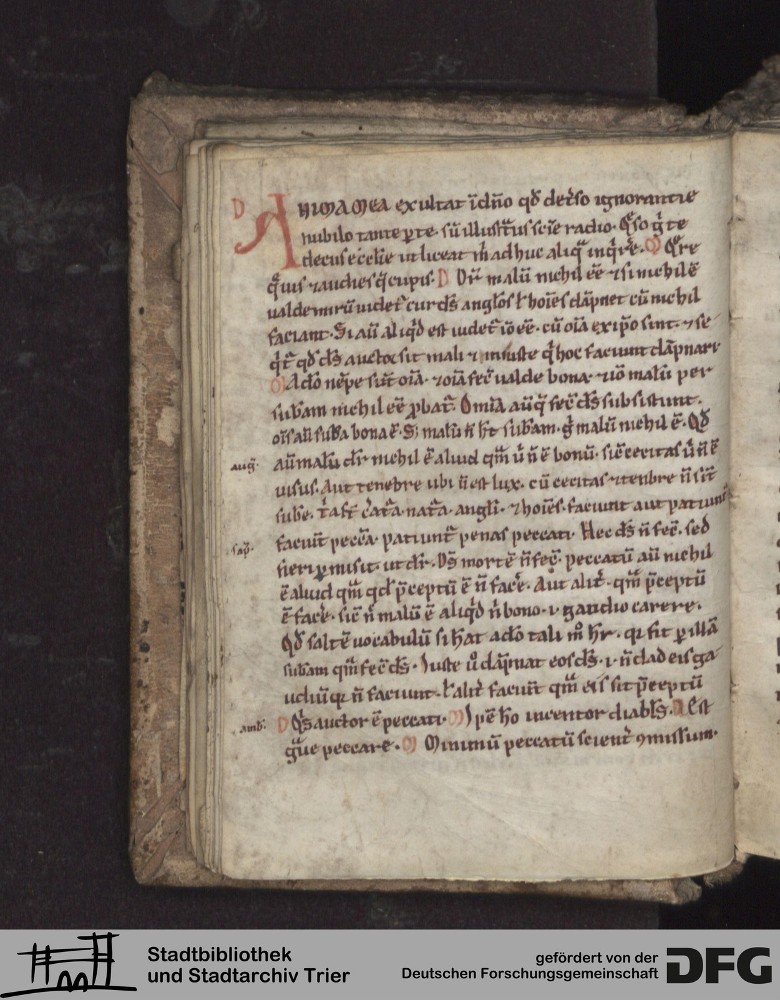 D ANIMA MEA exultat i dño qđ deterso ignorantie
nubilo tante ꝑ te. sũ illustratus scie radio. Qso g te
decus ecclie ut liceat m adhuc aliq inqrere. M Qre
q uis ⁊ audies q cupis. D Dr malũ nichil eē ⁊ si nichil ē
ualde mirũ uidet cur ds anglos l hoies dapnet cũ nichil
faciant. Si aũ aliqd est uidet io eē. cũ oia ex ipo sint. ⁊ se
qt qd ds auctor sit mali ⁊ iniuste q hoc faciunt dapnari
M Ado nepe sũt oia. ⁊ oia fec ualde bona. malũ per
subam nichil eē ꝓbat. Omia aũ q fec ds subsistunt.
ois aũ suba bona ē. S malũ n ht subam. g malũ nichil ē. Qd
aug. aũ malũ dr nichil ē aliud qm ũ n ē bonũ. sic cecitas ũ n ē
uisus. Aut tenebre ubi n est lux. cũ cecitas ⁊ tenebre n sĩt
sube. nata. angli. ⁊ hoies. faciunt aut patiunt
sap. faciunt pecca. patiunt penas peccati. Hec ds n fec. sed
fieri ꝑmisit. ut dr. Ds mortē n fec. peccatũ aũ nichil
ē aliud qm qd pceptũ ē n face. Aut alit. qm pceptũ
ē face. sic n malũ ē aliqd n bono .i. gaudio carere.
Qd salte uocabulũ si hat ado tali m hr. qr fit ꝑ illa
subam qm fec ds. Iuste u dapnat eos ds .i. n dad eis ga
udiũ qr n faciunt. l alit faciũt qm eis sit pceptũ
amb. D Qs auctor ē peccati. M Ipē ho inuentor diabls. D Est
gue peccare. M Minimũ peccatũ scient ꝯmissum.
Stadtbibliothek
und Stadtarchiv Trier
gefördert von der
Deutschen Forschungsgemeinschaft
DFG